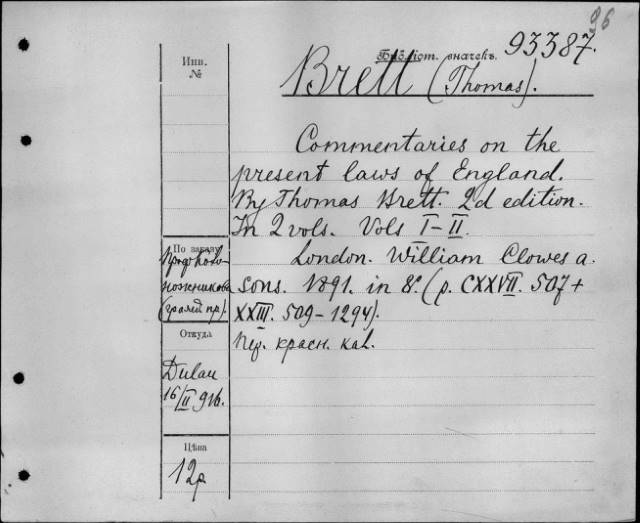 96
Библіот. значекъ. 93387.
Инв.
№
Brett (Thomas).
Commentaries on the
present laws of England.
By Thomas Brett. 2d edition.
In 2 vols. Vols I–II.
London. William Clowes a.
sons. 1891. in 8°. (p. CXXVII. 507+
XXIII. 509–1294).
Пер. красн. кал.
По заказу
Проф. Кожевникова
(гражд. пр.)
Откуда
Dulau
16/II 916.
Цѣна
12р